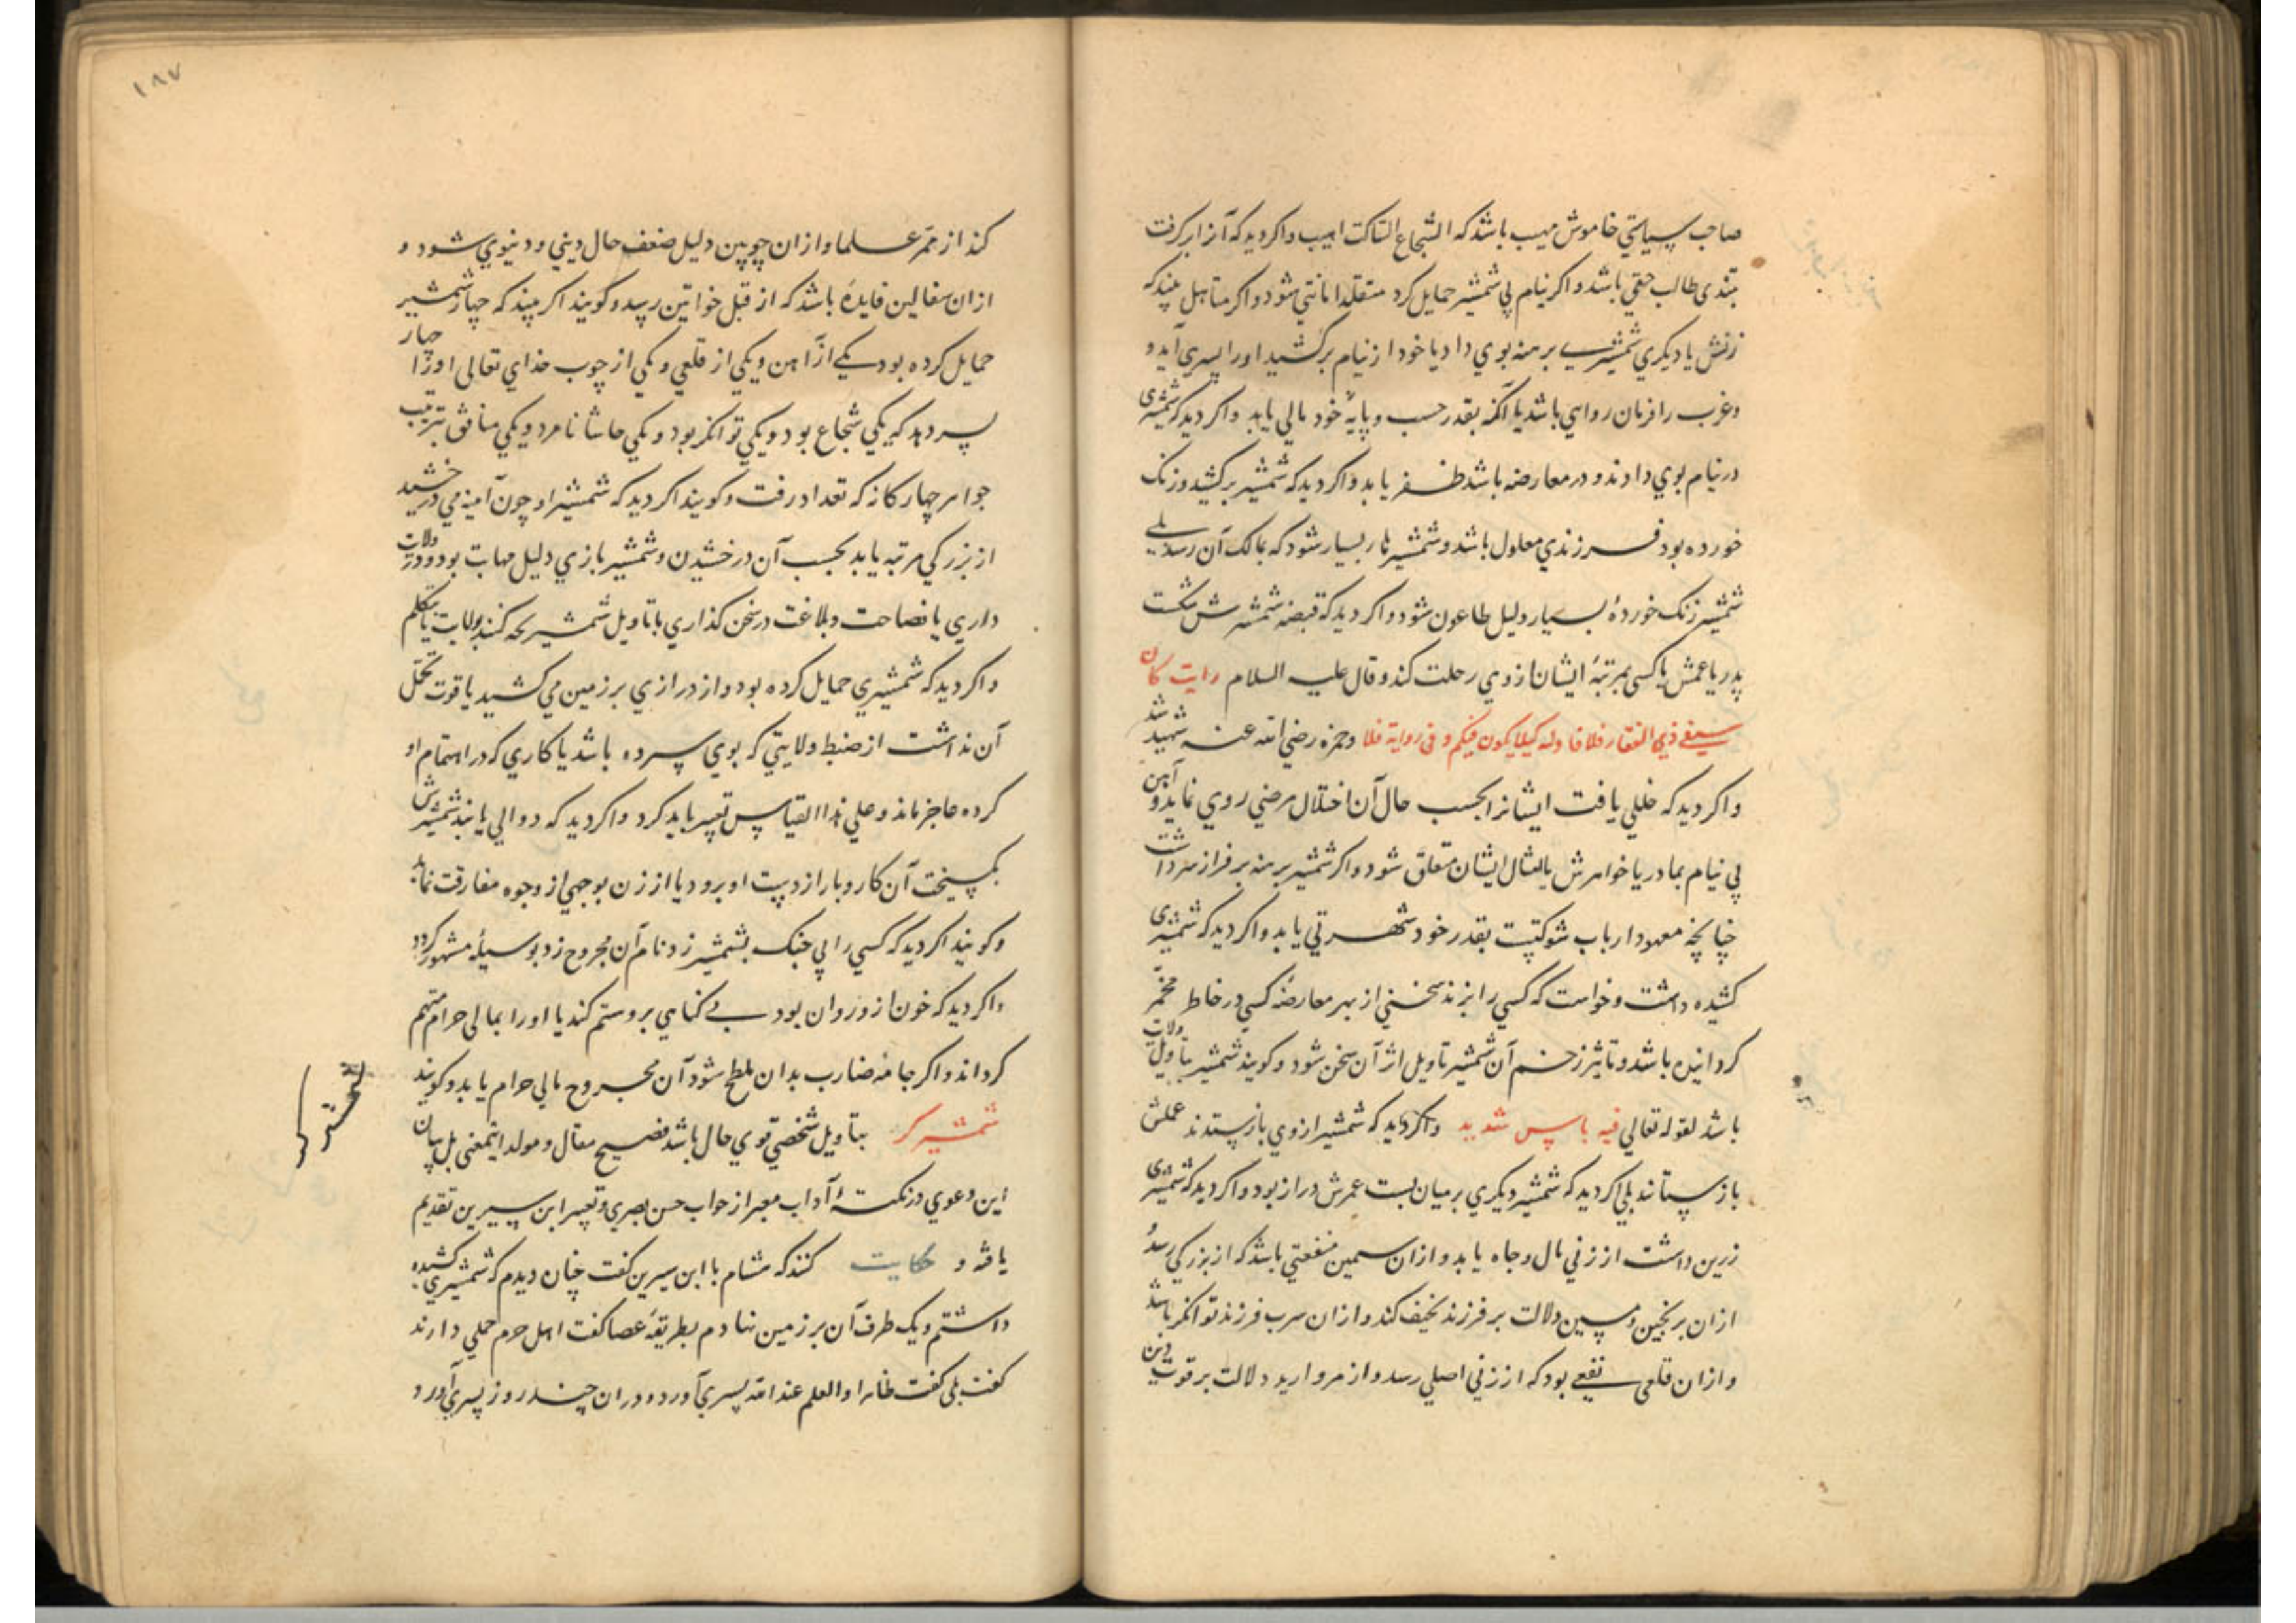 صاحب سیاستی خاموش مهیب باشد که الشجاع الساکت اهیب و اکر دید که آنرا بر کرفت
بتندی طالب حقی باشد و اکر نیام بی شمشیر حمایل کرد متقلد امانتی شود و اکر متاهل بیند که
زنش یا دیکری شمشیری برهنه بوی داد یا خود از نیام برکشید او را پسری آید و
و عزب را فرمان روایی باشد یا آنکه بقدر حسب و پایهٔ خود مالی یابد و اکر دید که شمشیری
در نیام بوی دادند و در معارضه باشد ظفر یابد و اکر دید که شمشیر برکشید و زنک
خورده بود فرزندی معلول باشد و شمشیرها بسیار شود که بمالک آن رسد بلی
شمشیر زنک خوردهٔ بسیار دلیل طاعون شود و اکر دید که قبضه شمشیرش شکست
پدر یا عمش یا کسی بمرتبهٔ ایشان از وی رحلت کند و قال علیه السلام رایت کان
سیفی ذی الفقار فلا فاوله کیلا یکون فیکم و فی روایة فلا و حمزه رضی الله عنه شهید شد
و اکر دید که خللی یافت ایشانرا بحسب حال آن اختلال مرضی روی نماید و آهن
بی نیام بمادر یا خواهرش یا امثال ایشان متعلق شود و اکر شمشیر برهنه بر فراز سر داشت
چنانچه معهود ارباب شوکتست بقدر خود شهرتی یابد و اکر دید که شمشیری
کشیده داشت و خواست که کسی را بزند سخنی از بهر معارضهٔ کسی در خاطر مخمّر
کردانیده باشد و تاثیر زخم آن شمشیر تاویل اثر آن سخن شود و کویند شمشیر بتاویل ولایت
باشد لقوله تعالی فیه باس شدید و اکر دید که شمشیر از وی بازستدند عملش
بازستانند بلی اکر دید که شمشیر دیکری بر میان بست عمرش دراز بود و اکر دید که شمشیری
زرین داشت از زنی مال و جاه یابد و از ان سیمین منفعتی باشد که از بزرکی رسد
از ان برنجین و مسین دلالت بر فرزند نحیف کند و از ان سرب فرزند توانکر باشد
و از ان قلعی نفعی بود که از زنی اصلی رسد و از مروارید دلالت بر قوت دین
۱۸۷
کند از ممر علما و از ان چوبین دلیل ضعف حال دینی و دنیوی شود و
از ان سفالین فایدهٔ باشد که از قبل خواتین رسد و کویند اکر بیند که چهار شمشیر
حمایل کرده بود یکی از آهن و یکی از قلعی و یکی از چوب خدای تعالی او را چهار
پسر دهد که یکی شجاع بود و یکی توانکر بود و یکی حاشا نامرد و یکی منافق بترتیب
جواهر چهارکانه که تعداد رفت و کویند اکر دید که شمشیر او چون آینه می درخشید
از بزرکی مرتبه یابد بحسب آن درخشیدن و شمشیر بازی دلیل مهابت بود و در ولایت
داری یا فصاحت و بلاغت در سخن کذاری با تاویل شمشیر بحه کنند بولایت یا تکلم
و اکر دید که شمشیری حمایل کرده بود و از درازی بر زمین می کشید یا قوت تحمّل
آن نداشت از ضبط ولایتی که بوی سپرده باشد یا کاری که در اهتمام او
کرده عاجز ماند و علی هذا القیاس تعبیر باید کرد و اکر دید که دوالی یا بند شمشیرش
بکسیخت آن کار و بار از دست او برود یا از زن بوجهی از وجوه مفارقت نماید
و کویند اکر دید که کسی را بی جنک بشمشیر زد نام آن مجروح زد بوسیله مشهور کردد
و اکر دید که خون از و روان بود بی کناهی برو ستم کند یا او را بمالی حرام متهم
کرداند و اکر جامه ضارب بدان ملطخ شود آن مجروح مالی حرام یابد و کویند
شمشیرکر بتاویل شخصی قوی حال باشد فصیح مقال و مولد اینمعنی بل بیان
شمشیرکر
این دعوی در نکتهٔ آداب معبر از خواب حسن بصری و تعبیر ابن سیرین تقدیم
یافته و حکایت کنند که هشام با ابن سیرین کفت چنان دیدم که شمشیری کشیده
داشتم و یک طرف آن بر زمین نهادم بطریقهٔ عصا کفت اهل حرم حملی دارند
کفت بلی کفت ظاهرا و العلم عند الله پسری آورد و در ان چند روز پسری آورد